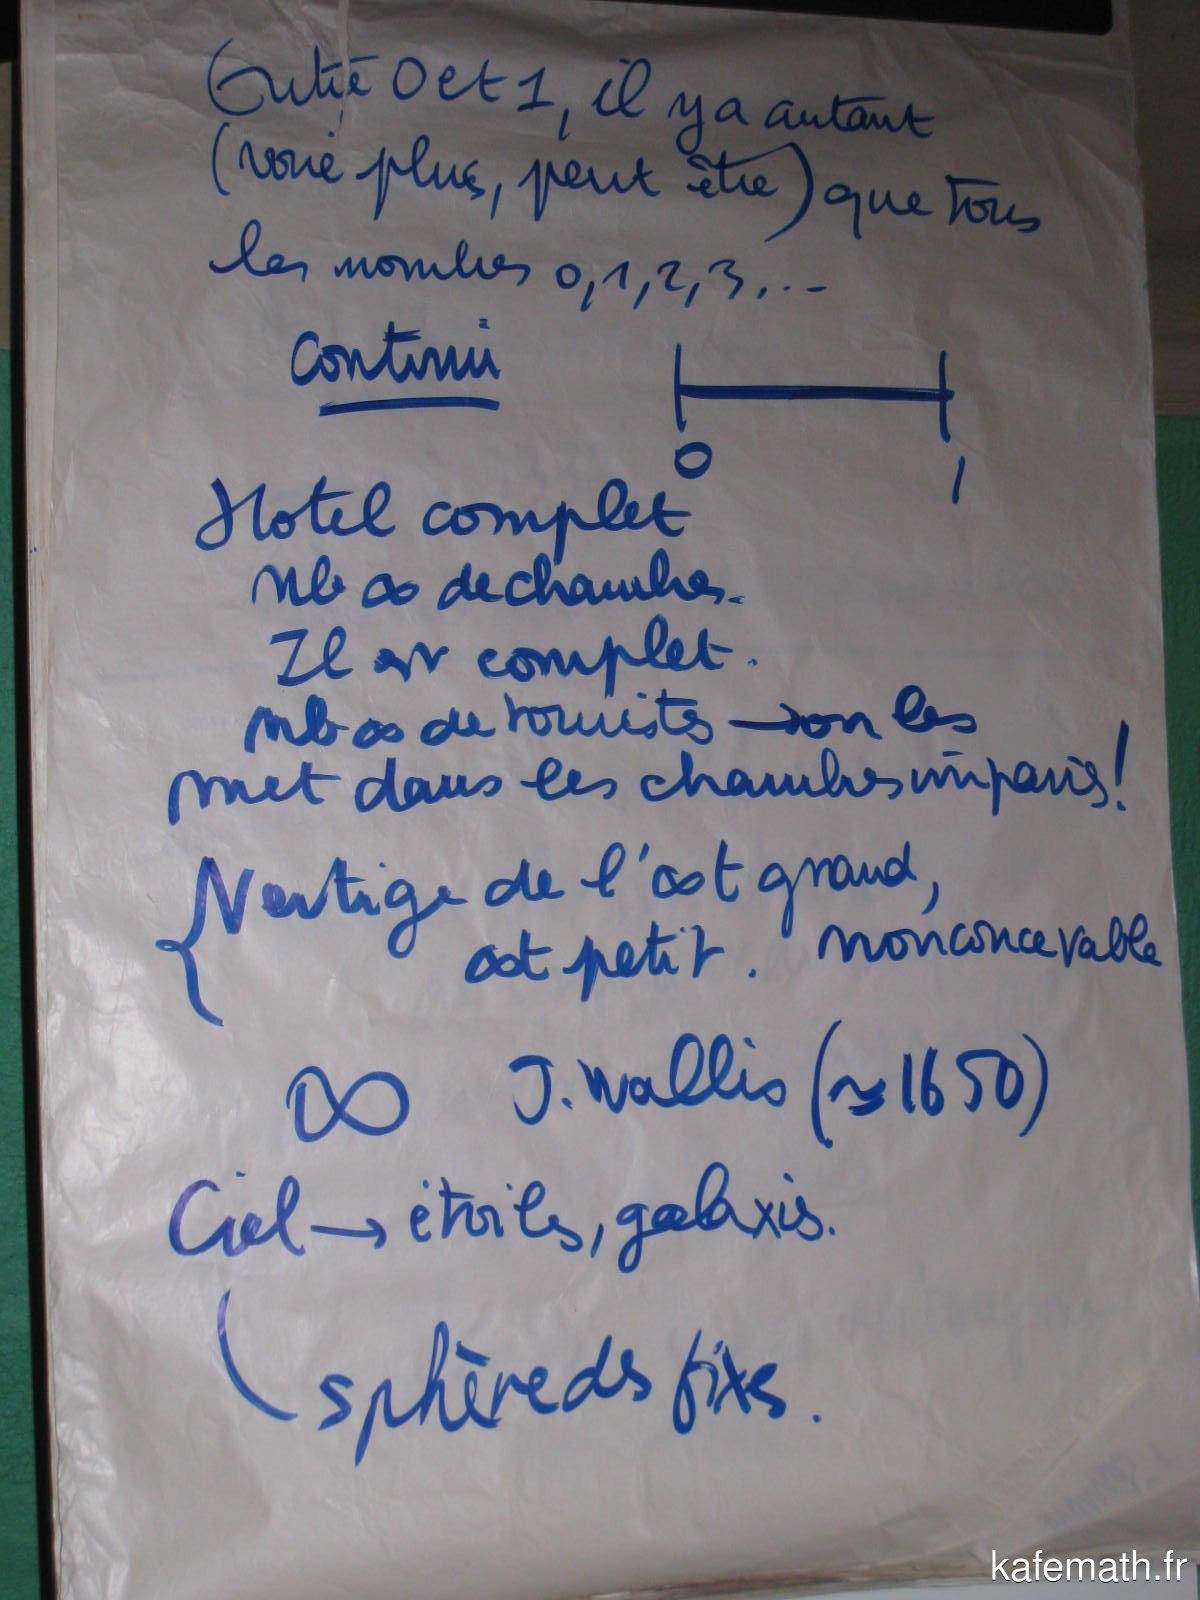 Entre 0 et 1, il y a autant
(voire plus, peut être) que tous
les nombres 0, 1, 2, 3, ...
continu
0 1
Hotel complet
Nb ∞ de chambres.
Il est complet.
nb ∞ de touristes → on les
met dans les chambres impaires!
Vertige de l'∞t grand,
∞t petit. nonconcevable
∞ J. Wallis (≈ 1650)
Ciel → étoiles, galaxies.
sphère des fixes.
kafemath.fr